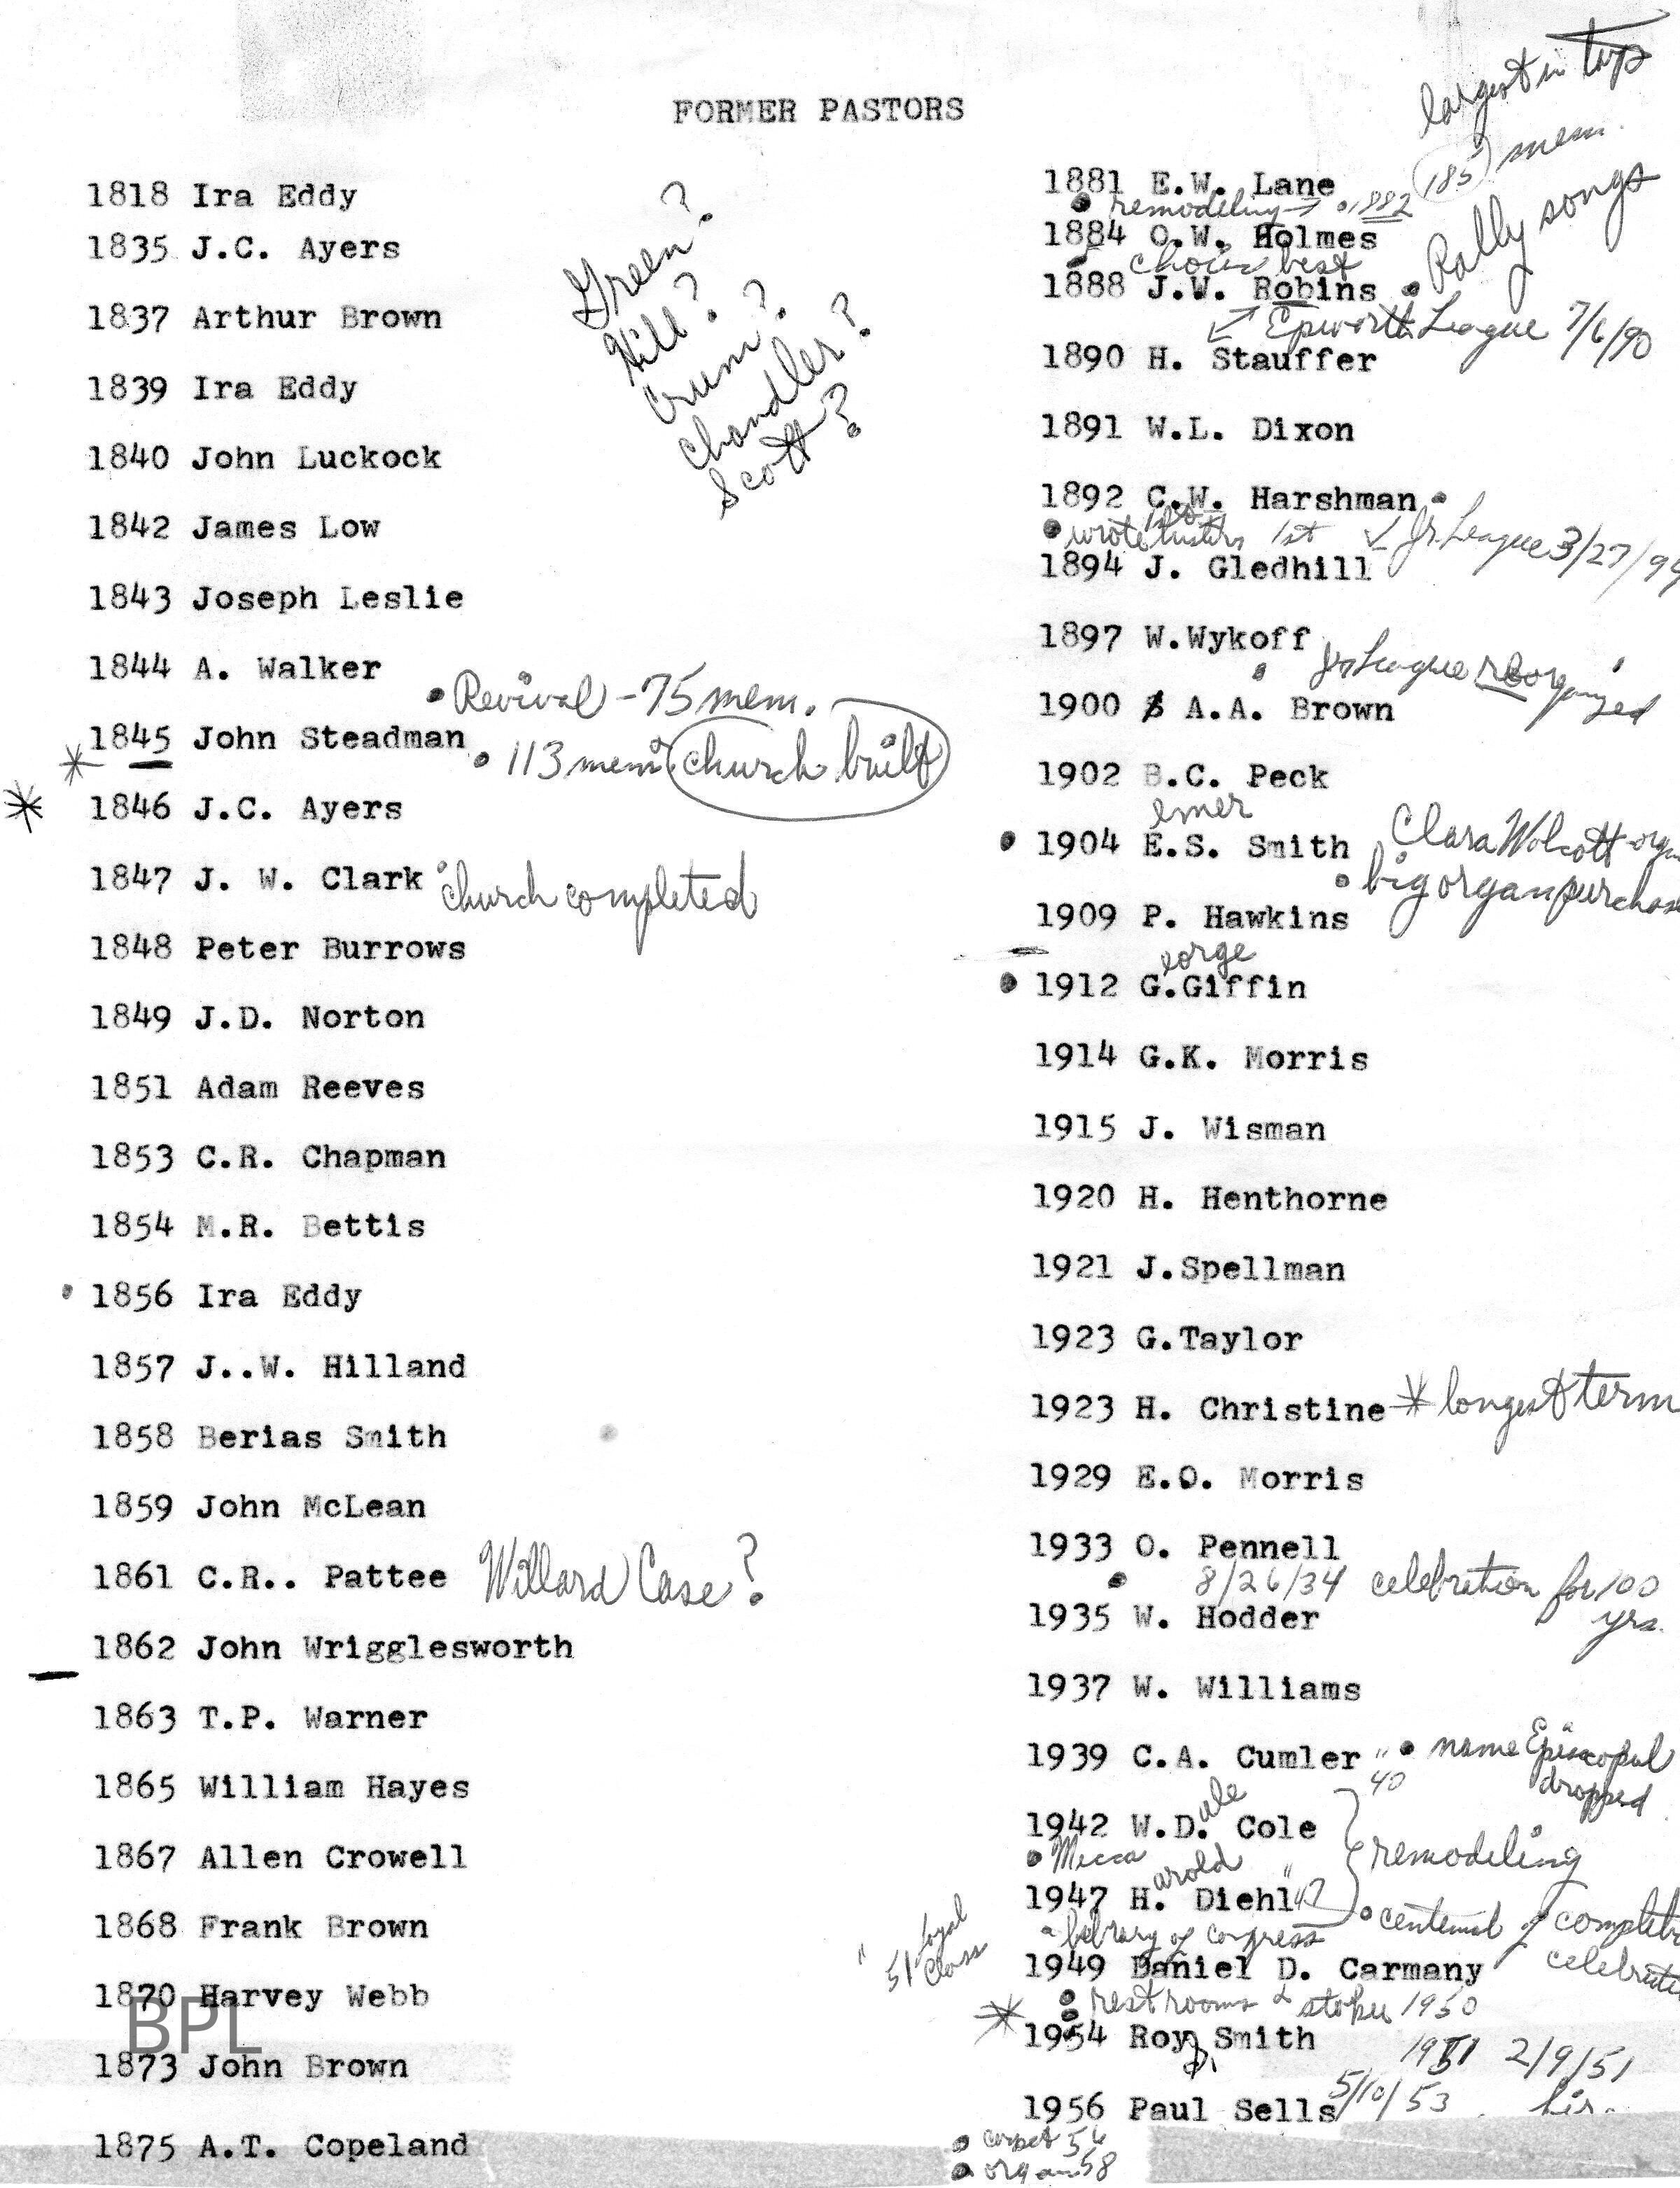 FORMER PASTORS
1818 Ira Eddy
1835 J.C. Ayers
1837 Arthur Brown
1839 Ira Eddy
1840 John Luckock
1842 James Low
1843 Joseph Leslie
1844 A. Walker
• Revival - 75 mem.
1845 John Steadman
• 113 mem church built
1846 J.C. Ayers
1847 J. W. Clark church completed
1848 Peter Burrows
1849 J.D. Norton
1851 Adam Reeves
1853 C.R. Chapman
1854 M.R. Bettis
1856 Ira Eddy
1857 J..W. Hilland
1858 Berias Smith
1859 John McLean
1861 C.R.. Pattee Willard Case?
1862 John Wrigglesworth
1863 T.P. Warner
1865 William Hayes
1867 Allen Crowell
1868 Frank Brown
1870 Harvey Webb
BPL
1873 John Brown
1875 A.T. Copeland
Green?
Hill?
Crum?
Chandler?
Scott?
largest in twp
185 mem.
Rally songs
1881 E.W. Lane
• remodeling → • 1882
1884 O.W. Holmes
choir best
1888 J.W. Robins •
Epworth League 7/6/90
1890 H. Stauffer
1891 W.L. Dixon
1892 C.W. Harshman •
• wrote 1st
Jr. League 3/27/94
1894 J. Gledhill
1897 W.Wykoff
Jr League reorganized
1900 A.A. Brown
1902 B.C. Peck
emer
1904 E.S. Smith
Clara Wolcott
• big organ
1909 P. Hawkins
eorge
1912 G.Giffin
1914 G.K. Morris
1915 J. Wisman
1920 H. Henthorne
1921 J.Spellman
1923 G.Taylor
1923 H. Christine * longest term
1929 E.O. Morris
1933 O. Pennell
• 8/26/34 celebration for 100 yrs.
1935 W. Hodder
1937 W. Williams
1939 C.A. Cumler "40 • name Episcopal dropped
ale
1942 W.D. Cole
• Mecca
remodeling
arold
1947 H. Diehl "47
• centennial of
library of congress
"51 Loyal Class
1949 Daniel D. Carmany
restrooms & stoker 1950
1954 Roy Smith
1951 2/9/51
1956 Paul Sells 5/10/53
• carpet 56
• organ 58